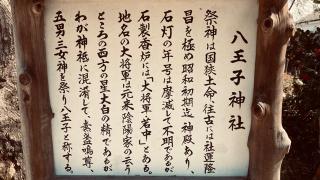 八王子神社
祭神は国狭土命、往古には社運隆
昌を極め昭和初期迄神殿あり、
石灯の年号は摩滅して不明であるが
石製香炉には「大将軍若中」とある。
地名の大将軍は元来陰陽家の云う
ところの西方の星太白の精であるが
わが神祗に混淆して、素盞鳴尊、
五男三女神を祭り八王子と称する。